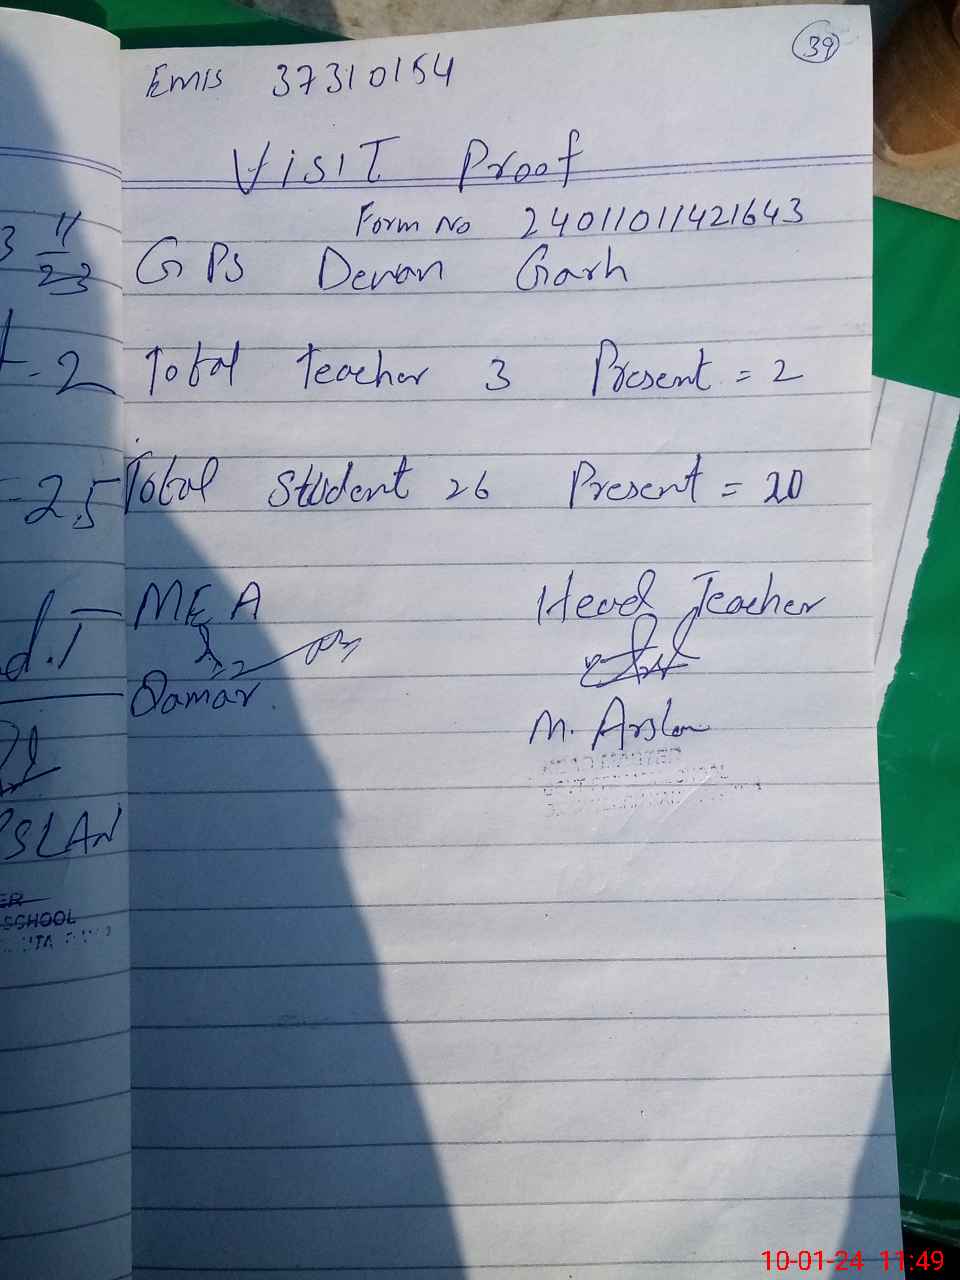 39
Emis 37310154
Visit Proof
Form No 24011011421643
GPS Dewan Garh
Total Teacher 3 Present = 2
Total Student 26 Present = 20
MEA Head Teacher
Qamar M. Arslan
3 11
23
- 2
= 25
d.T
SLAN
ER
SCHOOL
10-01-24 11:49